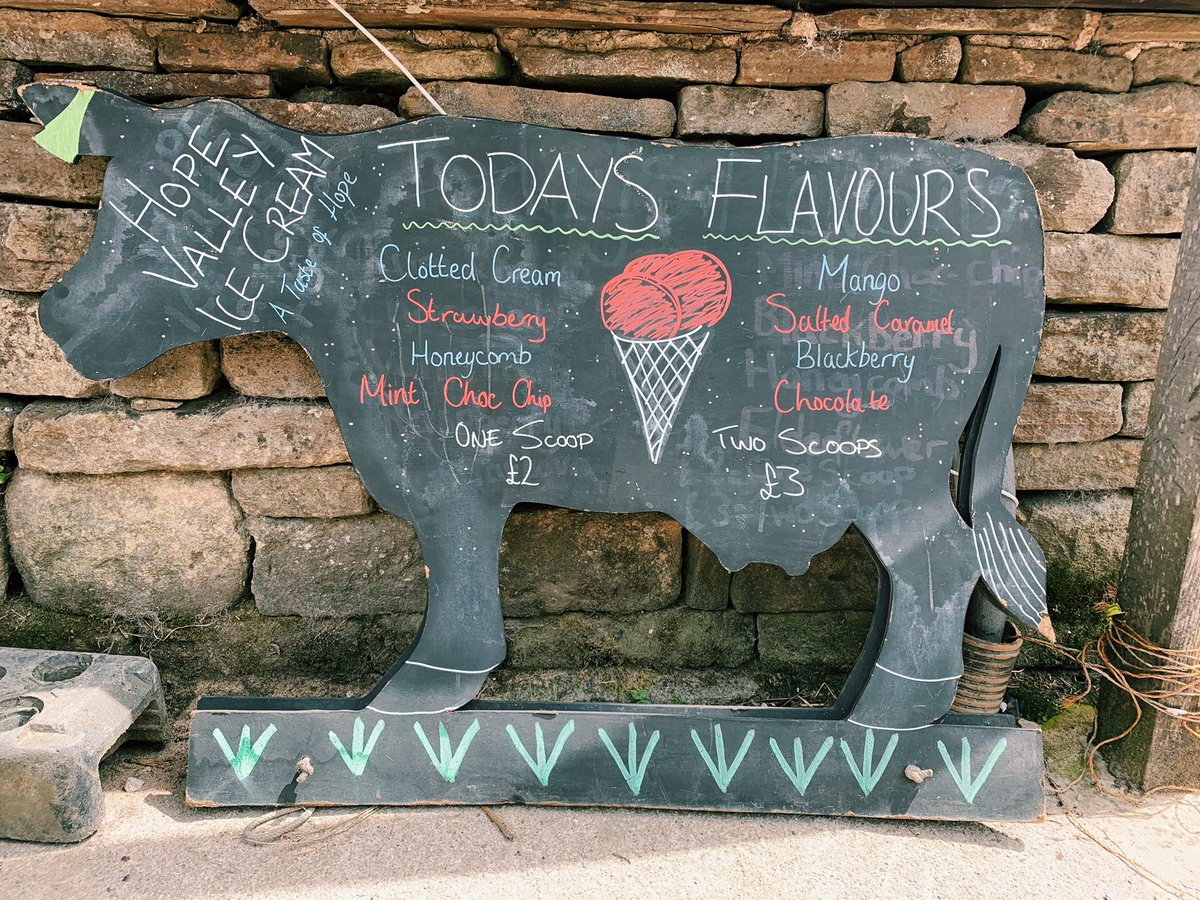 HOPE
VALLEY
ICE CREAM
A Taste of Hope
TODAYS FLAVOURS
Clotted Cream
Strawberry
Honeycomb
Mint Choc Chip
ONE SCOOP
£2
Mango
Salted Caramel
Blackberry
Chocolate
TWO SCOOPS
£3